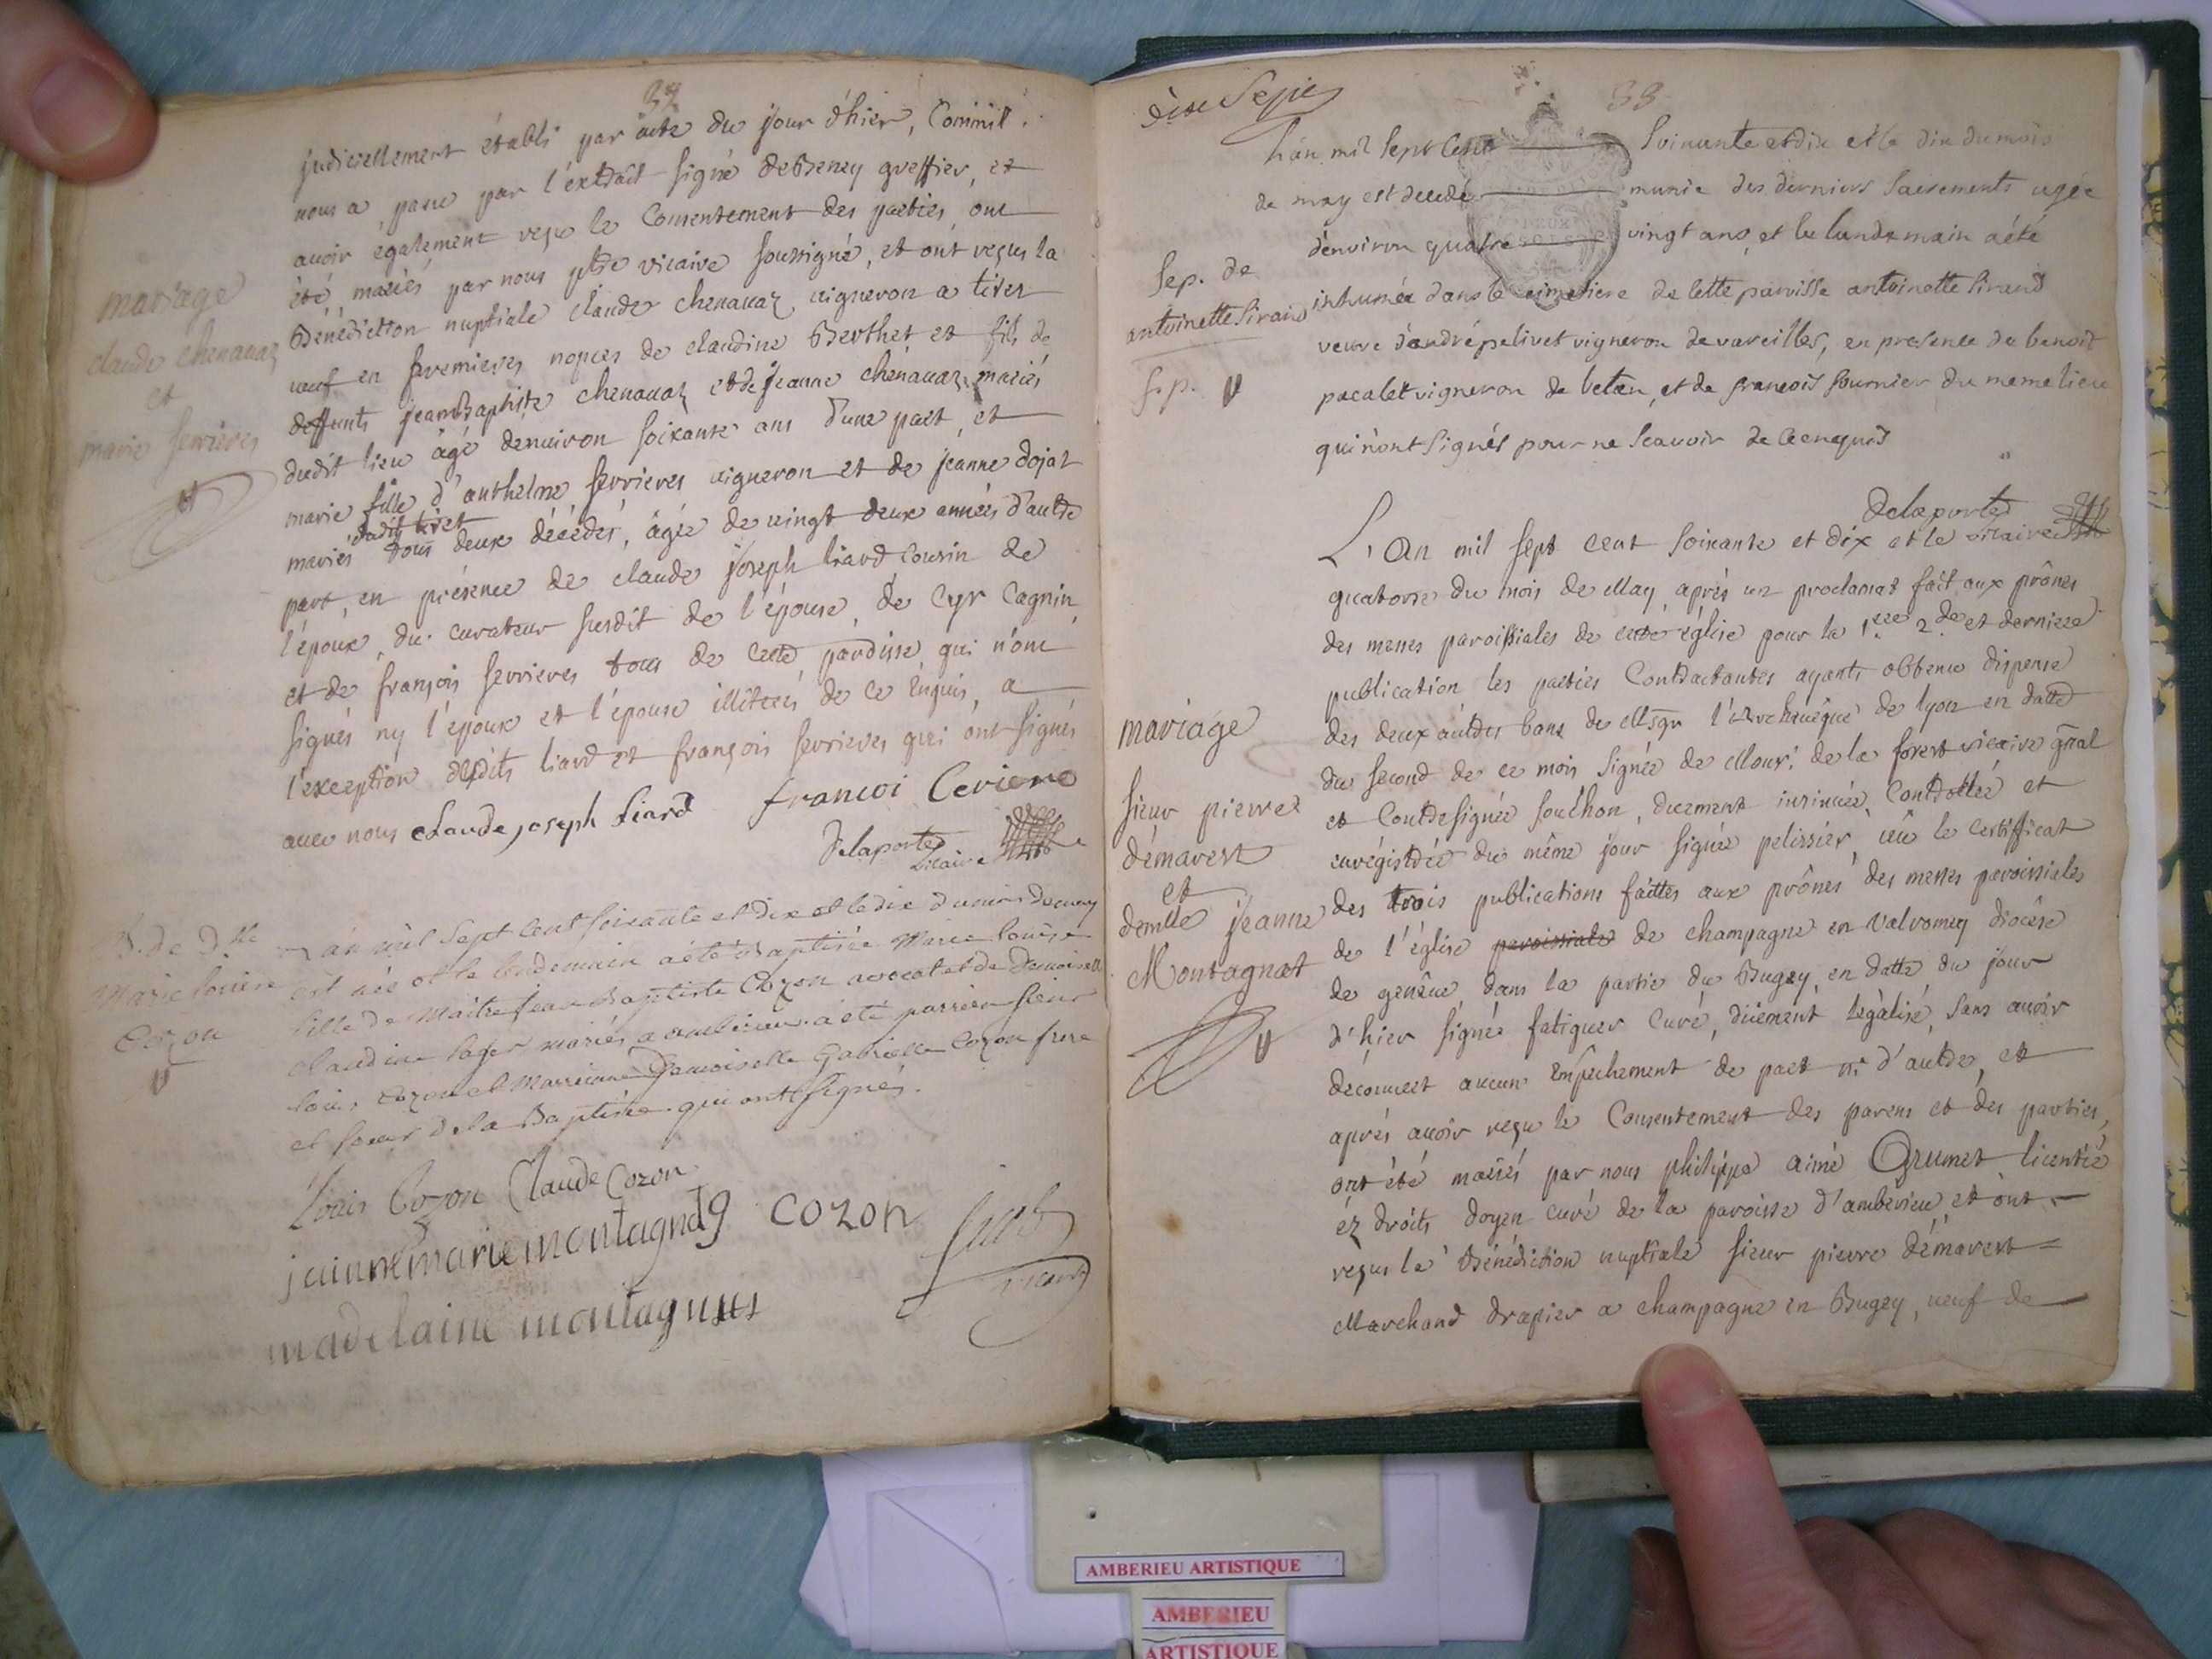 32
judiciellement établi par acte du jour d'hier, comme il
nous a paru par l'extrait signé debeney greffier, et
avoir également reçu le consentement des parties, ont
été mariés par nous ptre vicaire soussigné, et ont reçus la
mariage
claude chenavaz
et
marie serrieres
Bénédiction nuptiale claude chenavaz vigneron a tiret
veuf en premieres nopces de claudine Berthet et fils de
deffunts jeanbaptiste chenavaz et de jeanne chenavaz mariés
dudit lieu âgé denviron soixante ans d'une part, et
marie fille d'anthelme serrieres vigneron et de jeanne dojat
dudit tiret
mariés tous deux décédés, âgée de vingt deux années d'autre
part, en présence de claude joseph liard cousin de
l'époux, du curateur susdit de l'épouse, de Cyr Cagnin,
et de françois serrieres tous de cette paroisse qui n'ont
signés ny l'époux et l'épouse illitérés de ce enquis, a
l'exception desdits liard et françois serrieres qui ont signés
avec nous claude joseph liard francoi Ceriere
Delaporte
vicaire
B. de Dlle
Marie louise
Cozon
L'an mil sept cent soixante et dix et le dix du mois de may
est née et le lendemain a été Baptisée Marie louise
fille de Maitre jean Baptiste Cozon avocat et de Demoiselle
claudine mariés a amberieu a été parrein sieur
louis cozon et Marreinne Demoiselle Gabrielle Cozon frere
et soeur de la Baptisée qui ont signés.
Louis Cozon Claude Cozon
cozon
madelaine
33
L'an mil sept cent soixante et dix et le dix du mois
de may est decedé munie des derniers sacrements agée
d'environ quatre vingt ans et le lundemain a été
Sep. de
antoinette Sirand
inhumée dans le cimetiere de cette paroisse antoinette Sirand
veuve d'andré pelivet vigneron de vareilles, en presence de benoit
pacalet vigneron de , et de françois fournier du meme lieu
qui n'ont signés pour ne scavoir de ce enquis
Delaporte
vicaire
L'An mil sept cent soixante et dix et le
quatorse du mois de May, aprés un proclamat fait aux prônes
des messes paroissiales de cette église pour la 1ere 2de et derniere
publication les parties Contractantes ayants obtenu dispense
des deux autres bans de Msgr l'Archevêque de lyon en datte
mariage
sieur pierre
démarest
et
demlle jeanne
Montagnat
du second de ce mois signée de Monsr. de la forest vicaire gñal
et Contresignée souchon, duement insinuée, Controllée et
enrégistrée du même jour signée pelissier, vû le certifficat
des trois publications faittes aux prônes des messes paroissiales
de l'église paroissiale de champagne en Valromey diocèse
de genêve, dans la partie du Bugey, en datte du jour
d'hier signée fatiguer Curé, düement légalisé, sans avoir
decouvert aucun empêchement de part ni d'autre, et
aprés avoir reçu le Consentement des parens et des parties,
ont été mariés par nous philippe aimé Grumet licentié
éz droits doyen curé de la paroisse d'amberieu et ont
reçus la Bénédiction nuptiale sieur pierre démarest =
Marchand drapier a champagne en Bugey, veuf de
AMBERIEU ARTISTIQUE
AMBERIEU
ARTISTIQUE